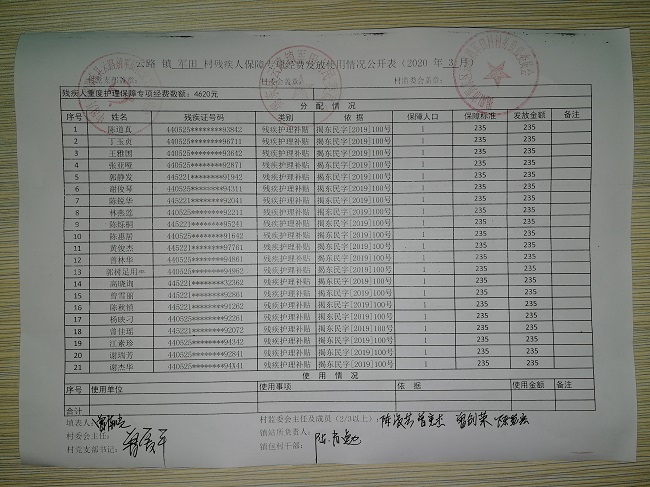 云路 镇 军田 村残疾人保障专项经费发放使用情况公开表（2020 年 3 月）
村委会盖章：
村监委会盖章：
残疾人重度护理保障专项经费数额：4620元
分 配 情 况
序号 姓名 残疾证号码 类别 依 据 保障人口 保障标准 发放金额 备注
1 陈道真 440525********93842 残疾护理补贴 揭东民字[2019]100号 1 235 235
2 丁玉贞 440525********96711 残疾护理补贴 揭东民字[2019]100号 1 235 235
3 王雅国 440525********93642 残疾护理补贴 揭东民字[2019]100号 1 235 235
4 张亚哑 440525********92871 残疾护理补贴 揭东民字[2019]100号 1 235 235
5 郭静发 445221********91942 残疾护理补贴 揭东民字[2019]100号 1 235 235
6 谢俊琴 440525********94311 残疾护理补贴 揭东民字[2019]100号 1 235 235
7 陈锐华 440525********92041 残疾护理补贴 揭东民字[2019]100号 1 235 235
8 林燕莲 440525********92211 残疾护理补贴 揭东民字[2019]100号 1 235 235
9 陈烁桐 445221********95241 残疾护理补贴 揭东民字[2019]100号 1 235 235
10 陈惠居 440525********91682 残疾护理补贴 揭东民字[2019]100号 1 235 235
11 黄俊杰 445221********97761 残疾护理补贴 揭东民字[2019]100号 1 235 235
12 曾林华 440525********94861 残疾护理补贴 揭东民字[2019]100号 1 235 235
13 郭树足用 440525********94962 残疾护理补贴 揭东民字[2019]100号 1 235 235
14 高晓洵 445221********32362 残疾护理补贴 揭东民字[2019]100号 1 235 235
15 曾雪丽 445221********92861 残疾护理补贴 揭东民字[2019]100号 1 235 235
16 陈秋销 440525********91262 残疾护理补贴 揭东民字[2019]100号 1 235 235
17 杨映刁 440525********92261 残疾护理补贴 揭东民字[2019]100号 1 235 235
18 曾佳瑶 445221********92072 残疾护理补贴 揭东民字[2019]100号 1 235 235
19 江素珍 440525********94342 残疾护理补贴 揭东民字[2019]100号 1 235 235
20 谢瑞芳 440525********92841 残疾护理补贴 揭东民字[2019]100号 1 235 235
21 谢杰华 440525********94X41 残疾护理补贴 揭东民字[2019]100号 1 235 235
使 用 情 况
序号 使用单位 使用事项 依 据 使用金额 备注
合计
填表人： 村监委会主任及成员（2/3以上）：
村委会主任： 镇站所负责人：
村党支部书记： 镇包村干部：